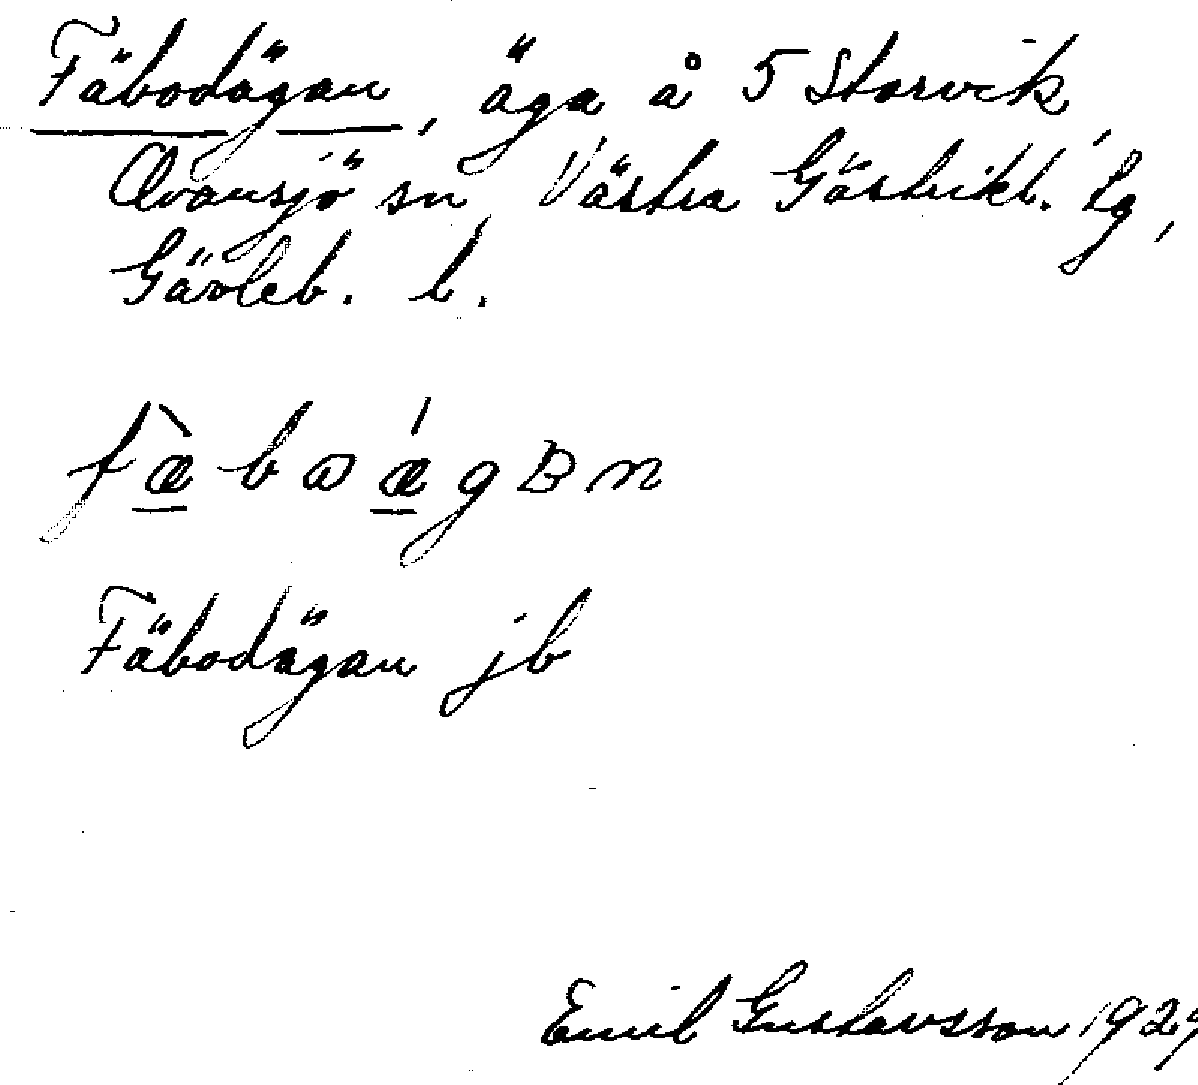 Fäbodägan, äga å 5 Storvik,
Ovansjö sn, Västra Gästrikl. tg,
Gävleb. l.
Fäbodägan jb
Emil Gustavsson